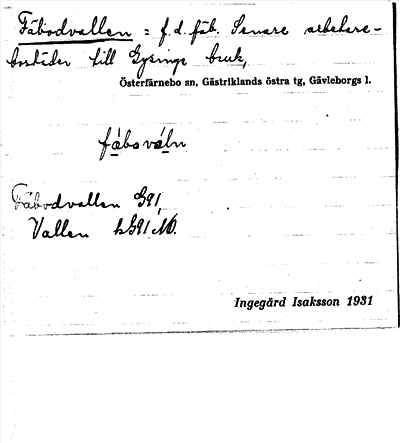 Fäbodvallen = f.d. fäb. Senare arbetare-
bostäder till Gysinge bruk,
Österfärnebo sn, Gästriklands östra tg, Gävleborgs l.
fábovál̥n
Fäbodvallen G91
Vallen hG91
Ingegärd Isaksson 1931